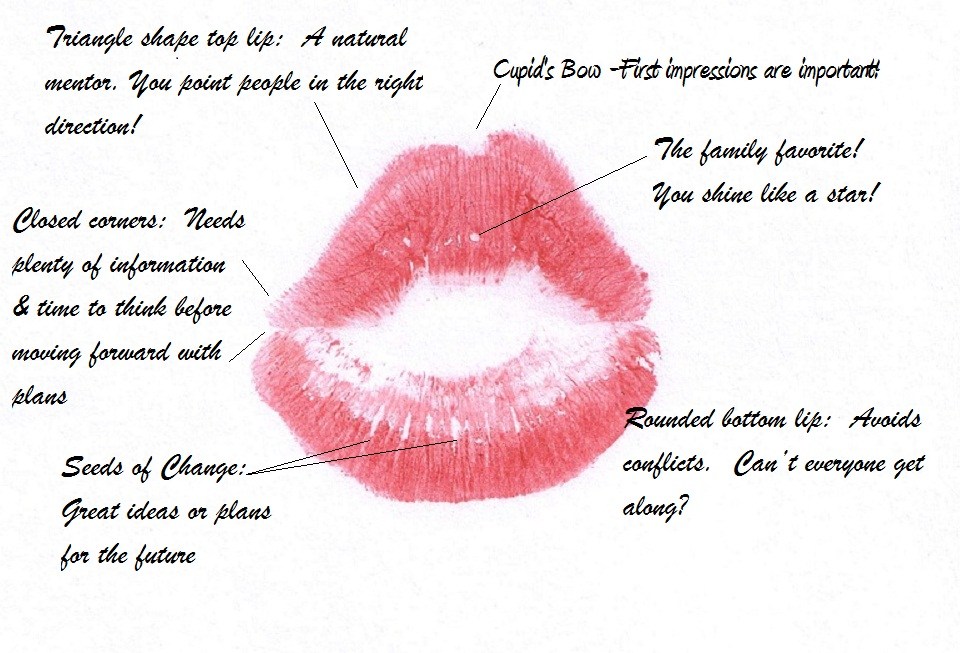 Triangle shape top lip: A natural
mentor. You point people in the right
direction!
Cupid's Bow -First impressions are important!
The family favorite!
You shine like a star!
Closed corners: Needs
plenty of information
& time to think before
moving forward with
plans
Rounded bottom lip: Avoids
conflicts. Can't everyone get
along?
Seeds of Change:
Great ideas or plans
for the future